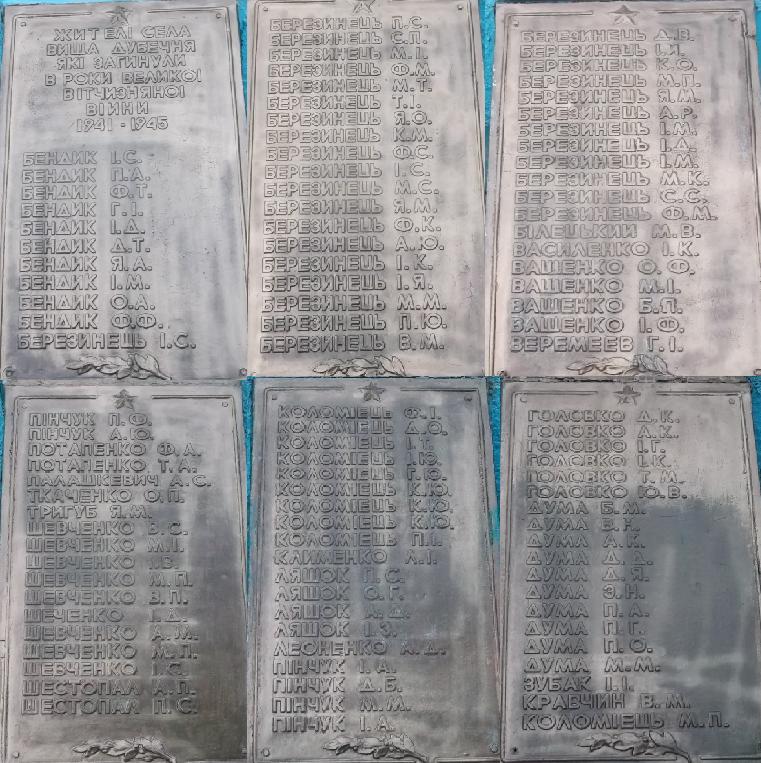 ЖИТЕЛІ СЕЛА
ВИЩА ДУБЕЧНЯ
ЯКІ ЗАГИНУЛИ
В РОКИ ВЕЛИКОЇ
ВІТЧИЗНЯНОЇ
ВІЙНИ
1941-1945
БЕНДИК І.С.
БЕНДИК П.А.
БЕНДИК Ф.Т.
БЕНДИК Г.І.
БЕНДИК І.Д.
БЕНДИК Д.Т.
БЕНДИК Я.А.
БЕНДИК І.М.
БЕНДИК О.А.
БЕНДИК Ф.Ф.
БЕРЕЗИНЕЦЬ І.С.
БЕРЕЗИНЕЦЬ П.С.
БЕРЕЗИНЕЦЬ С.П.
БЕРЕЗИНЕЦЬ М.І.
БЕРЕЗИНЕЦЬ Ф.М.
БЕРЕЗИНЕЦЬ М.Т.
БЕРЕЗИНЕЦЬ Т.І.
БЕРЕЗИНЕЦЬ Я.О.
БЕРЕЗИНЕЦЬ К.М.
БЕРЕЗИНЕЦЬ Ф.С.
БЕРЕЗИНЕЦЬ І.С.
БЕРЕЗИНЕЦЬ М.С.
БЕРЕЗИНЕЦЬ Я.М.
БЕРЕЗИНЕЦЬ Ф.К.
БЕРЕЗИНЕЦЬ А.Ю.
БЕРЕЗИНЕЦЬ І.К.
БЕРЕЗИНЕЦЬ І.Я.
БЕРЕЗИНЕЦЬ М.М.
БЕРЕЗИНЕЦЬ П.Ю.
БЕРЕЗИНЕЦЬ В.М.
БЕРЕЗИНЕЦЬ Д.В.
БЕРЕЗИНЕЦЬ І.Я.
БЕРЕЗИНЕЦЬ К.О.
БЕРЕЗИНЕЦЬ М.П.
БЕРЕЗИНЕЦЬ Я.М.
БЕРЕЗИНЕЦЬ А.Р.
БЕРЕЗИНЕЦЬ І.М.
БЕРЕЗИНЕЦЬ І.Д.
БЕРЕЗИНЕЦЬ І.М.
БЕРЕЗИНЕЦЬ М.К.
БЕРЕЗИНЕЦЬ С.С.
БЕРЕЗИНЕЦЬ Ф.М.
БІЛЕЦЬКИЙ М.В.
ВАСИЛЕНКО І.К.
ВАЩЕНКО О.Ф.
ВАЩЕНКО М.І.
ВАЩЕНКО Б.П.
ВАЩЕНКО І.Ф.
ВЕРЕМЕЕВ Г.І.
ПІНЧУК П.Ф.
ПІНЧУК А.Ю.
ПОТАПЕНКО Ф.А.
ПОТАПЕНКО Т.А.
ПАЛАШКЕВИЧ А.С.
ТКАЧЕНКО О.П.
ТРИГУБ Я.М.
ШЕВЧЕНКО В.С.
ШЕВЧЕНКО М.П.
ШЕВЧЕНКО
ШЕВЧЕНКО М.П.
ШЕВЧЕНКО В.П.
ШЕЧЕНКО І.Д.
ШЕВЧЕНКО А.М.
ШЕВЧЕНКО М.П.
ШЕВЧЕНКО І.С.
ШЕСТОПАЛ А.П.
ШЕСТОПАЛ П.С.
КОЛОМІЄЦЬ Ф.І.
КОЛОМІЄЦЬ Д.О.
КОЛОМІЄЦЬ І.Т.
КОЛОМІЄЦЬ І.Ю.
КОЛОМІЄЦЬ Г.Ю.
КОЛОМІЄЦЬ К.Ю.
КОЛОМІЄЦЬ К.Ю.
КОЛОМІЄЦЬ К.Ю.
КОЛОМІЄЦЬ П.І.
КЛИМЕНКО Л.І.
ЛЯШОК П.С.
ЛЯШОК О.Г.
ЛЯШОК А.Д.
ЛЯШОК І.З.
ЛЕОНЕНКО А.Д.
ПІНЧУК І.А.
ПІНЧУК Д.Б.
ПІНЧУК М.М.
ПІНЧУК І.А.
ГОЛОВКО Д.К.
ГОЛОВКО А.К.
ГОЛОВКО І.Г.
ГОЛОВКО І.К.
ГОЛОВКО Т.М.
ГОЛОВКО Ю.В.
ДУМА Б.М.
ДУМА В.Н.
ДУМА А.К.
ДУМА Д.Д.
ДУМА Д.Я.
ДУМА З.Н.
ДУМА П.А.
ДУМА П.Г.
ДУМА П.О.
ДУМА М.М.
ЗУБАК І.І.
КРАВЧИН В.М.
КОЛОМІЄЦЬ М.П.